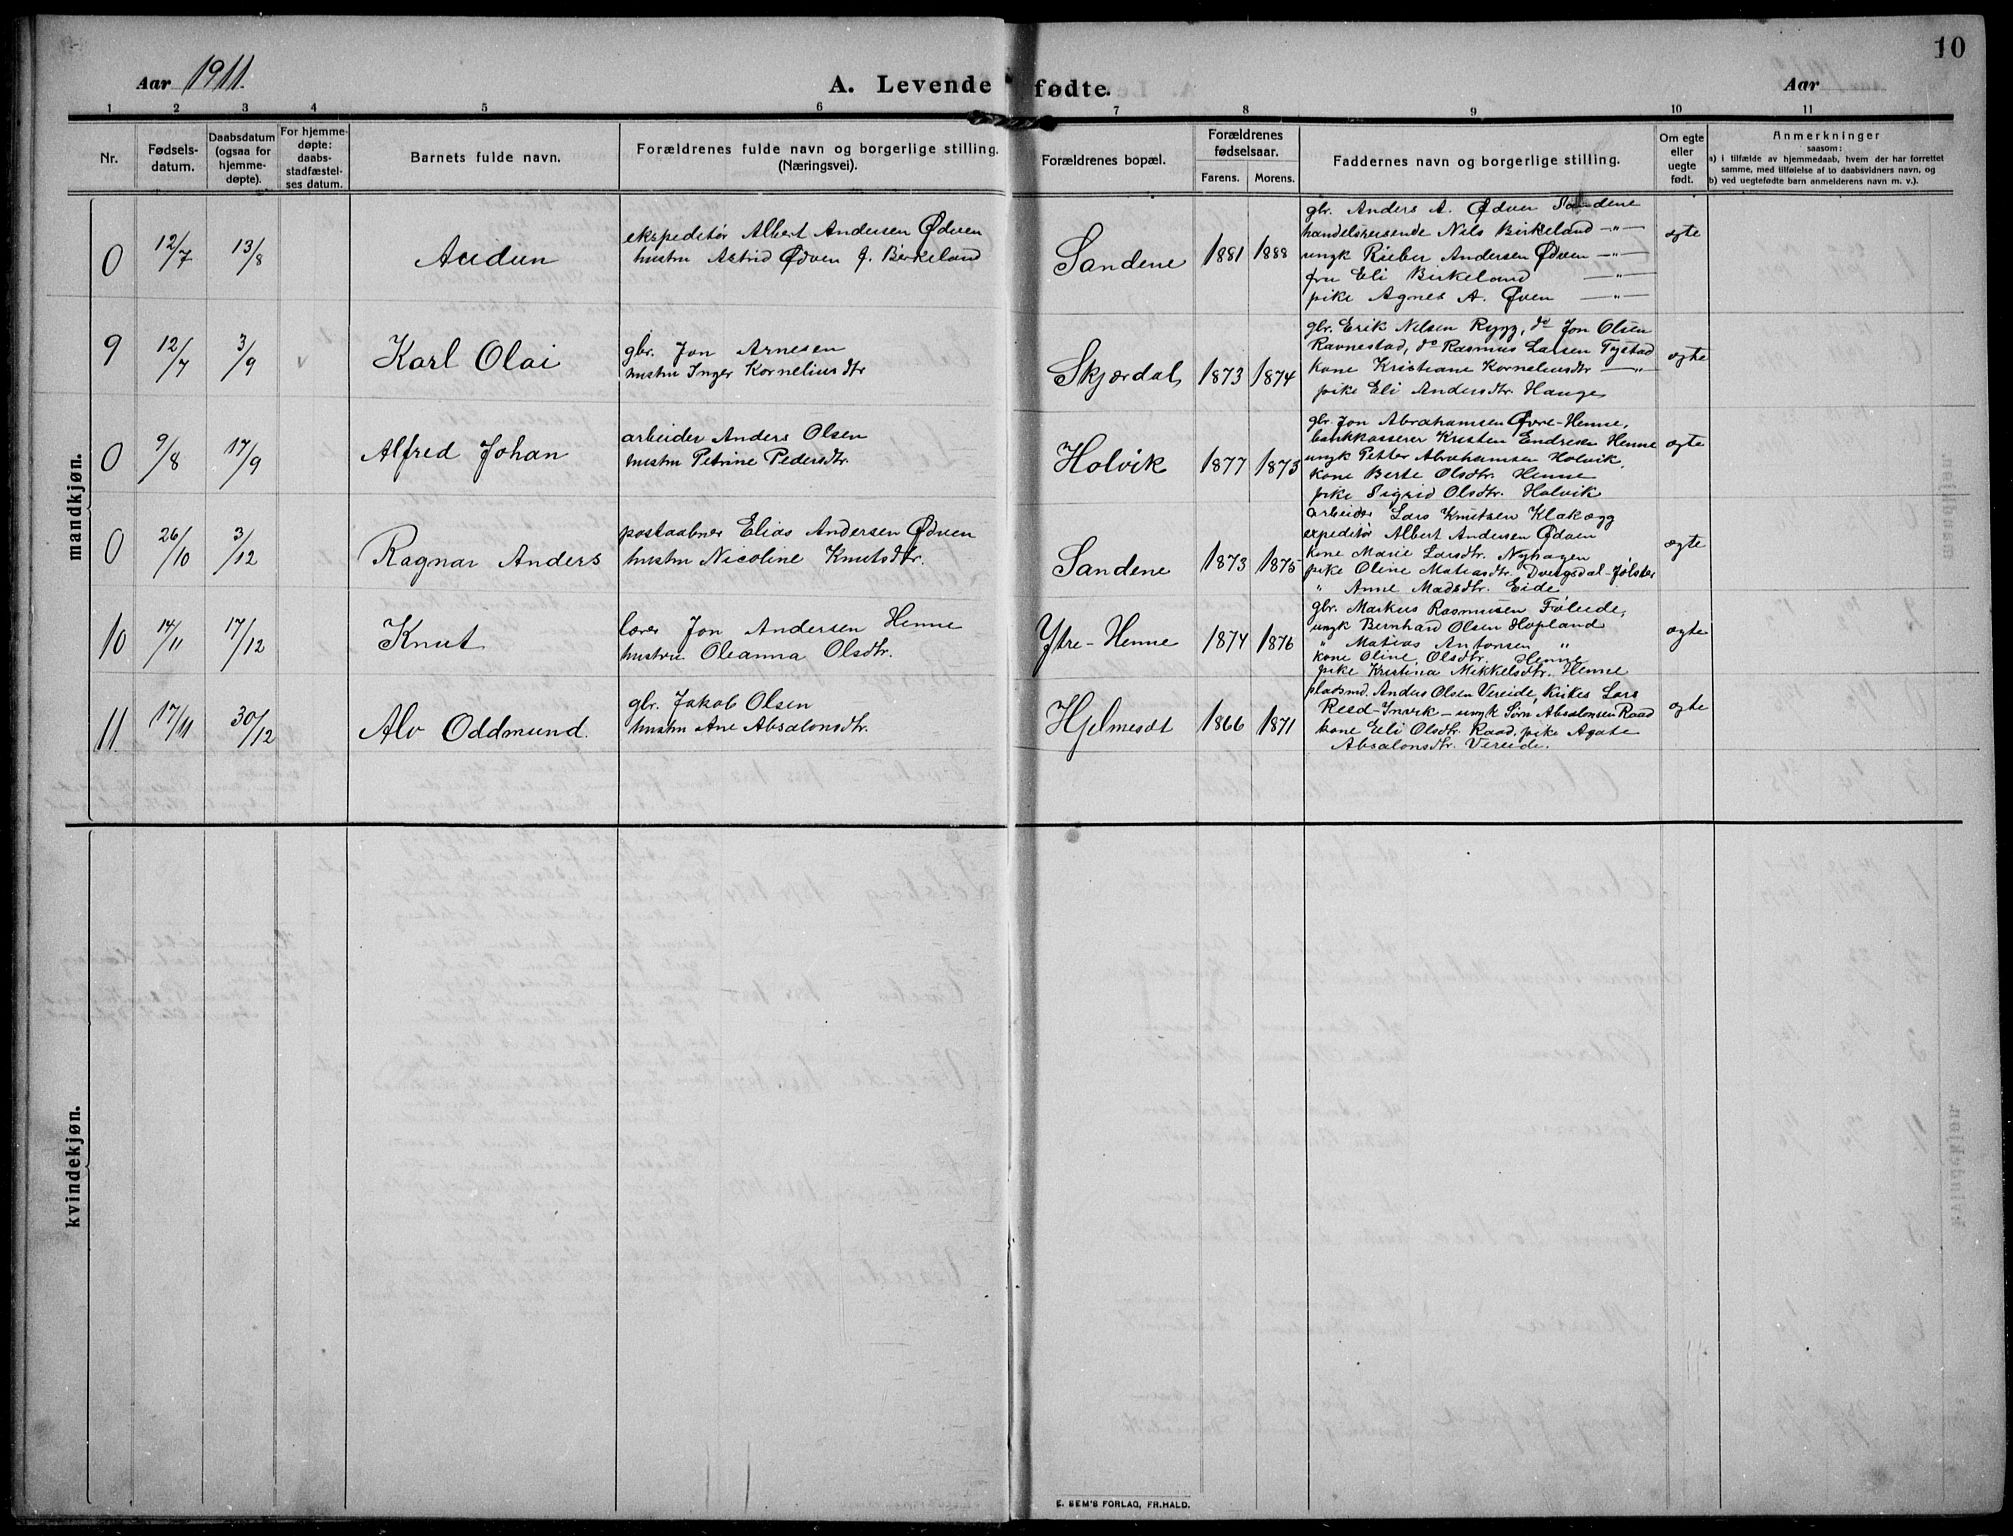 10
Aar 1911.
A. Levende fødte.
Aar
1 2 3 4 5 6 7 8 9 10 11
Nr.
Fødsels-
datum.
Daabsdatum
(ogsaa for
hjemme-
døpte).
For hjemme-
døpte:
daabs-
stadfæstel-
ses datum.
Barnets fulde navn.
Forældrenes fulde navn og borgerlige stilling.
(Næringsvei).
Forældrenes bopæl.
Forældrenes
fødselsaar.
Farens. Morens.
Faddernes navn og borgerlige stilling.
Om egte
eller
uegte
født.
Anmerkninger
saasom:
a) i tilfælde av hjemmedaab, hvem der har forrettet
samme, med tilføielse af to daabsvidners navn, og
b) ved uegtefødte barn anmelderens navn m. v.).
mandkjøn.
0 12/7 13/8 Audun
ekspeditør Albert Andersen Ødven
hustru Astrid Ødven f. Birkeland
Sandene 1881 1888
gbr. Anders A. Ødven Sandene
handelsreisende Nils Birkeland —"—
ungk Rieber Andersen Ødven —"—
fru Eli Birkeland —"—
pike Agnes A. Øven —"—
egte
9 12/7 3/9 v Karl Olai
gbr. Jon Arnesen
hustru Inger Korneliusdtr
Skjærdal 1873 1874
gbr. Erik Nilsen Rygg, do Jon Olsen
Ravnestad, do Rasmus Larsen Tystad
kone Kristiane Korneliusdtr —"—
pike Eli Andersdtr. Hauge
egte
0 9/8 17/9 Alfred Johan
arbeider Anders Olsen
hustru Petrine Pedersdtr.
Holvik 1877 1873
gbr. Jon Abrahamsen Øvre-Henne,
bankkasserer Kristen Endresen Henne
ungk Petter Abrahamsen Holvik,
kone Berte Olsdtr. Henne
pike Sigrid Olsdtr. Holvik
egte
0 26/10 3/12 Ragnar Anders
postaabner Elias Andersen Ødven
hustru Nicoline Knutsdtr.
Sandene 1873 1875
arbeider Lars Knutsen Klakegg
expeditør Albert Andersen Ødven
kone Marie Larsdtr. Nyhagen
pike Oline Matiasdtr. Dvergsdal-Jølster
" Anne Madsdtr. Eide
egte
10 14/11 17/12 Knut
lærer Jon Andersen Henne
hustru Oleanna Olsdtr.
Ytre-Henne 1874 1876
gbr. Markus Rasmusen Føleide,
ungk Bernhard Olsen Hopland
" Matias Antonsen "
kone Oline Olsdtr. Henne
pike Kristina Mikkelsdtr. Henne
egte
11. 17/11 30/12 Alv Oddmund.
gbr. Jakob Olsen
hustru Ane Absalonsdtr.
Hjelmesdt 1866 1871
pladsmd. Anders Olsen Vereide, Lars
Reed-Invik — ungk Sørn Absalonsen Raad
kone Eli Olsdtr. Raad. pike Agate
Absalonsdtr. Vereide.
egte
kvindekjøn.
E. SEM'S FORLAG, FR.HALD.